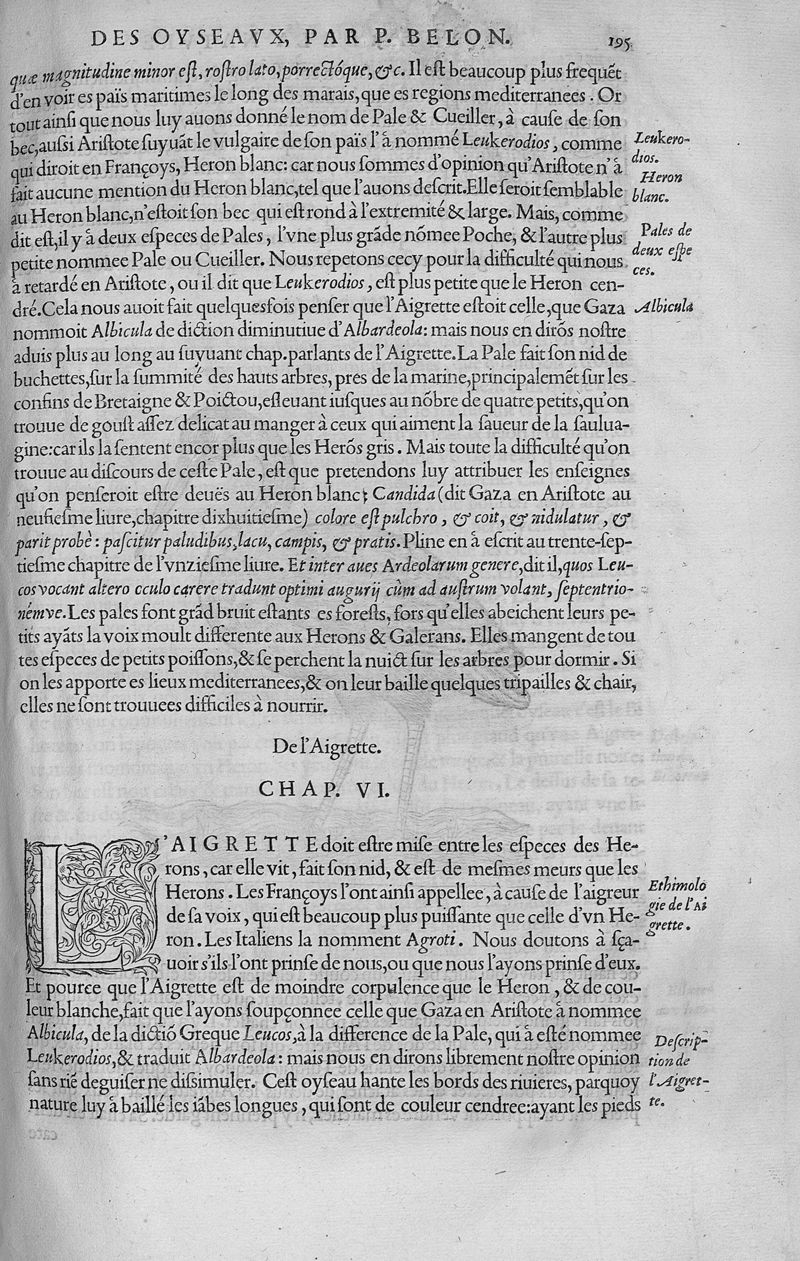 DES OYSEAVX, PAR P. BELON. 195
quæ magnitudine minor eſt, roſtro lato, porrectóque, &c. Il eſt beaucoup plus frequẽt
d'en voir es païs maritimes le long des marais, que es regions mediterranees. Or
tout ainſi que nous luy auons donné le nom de Pale & Cueiller, à cauſe de ſon
bec, auſsi Ariſtote ſuyuãt le vulgaire de ſon païs l'à nommé Leukerodios, comme
Leukero-
qui diroit en Françoys, Heron blanc: car nous ſommes d'opinion qu'Ariſtote n'à
dios.
Heron
fait aucune mention du Heron blanc, tel que l'auons deſcrit. Elle ſeroit ſemblable
blanc.
au Heron blanc, n'eſtoit ſon bec qui eſt rond à l'extremité & large. Mais, comme
dit eſt, il y à deux eſpeces de Pales, l'vne plus grãde nõmee Poche, & l'autre plus
Pales de
petite nommee Pale ou Cueiller. Nous repetons cecy pour la difficulté qui nous
deux eſpe
à retardé en Ariſtote, ou il dit que Leukerodios, eſt plus petite que le Heron cen-
ces.
dré. Cela nous auoit fait quelquesfois penſer que l'Aigrette eſtoit celle, que Gaza
Albicula
nommoit Albicula de diction diminutiue d'Albardeola: mais nous en dirõs noſtre
aduis plus au long au ſuyuant chap. parlants de l'Aigrette. La Pale fait ſon nid de
buchettes, ſur la ſummité des hauts arbres, pres de la marine, principalemẽt ſur les
confins de Bretaigne & Poictou, eſleuant iuſques au nõbre de quatre petits, qu'on
trouue de gouſt aſſez delicat au manger à ceux qui aiment la ſaueur de la ſauluа-
gine: car ils la ſentent encor plus que les Herõs gris. Mais toute la difficulté qu'on
trouue au diſcours de ceſte Pale, eſt que pretendons luy attribuer les enſeignes
qu'on penſeroit eſtre deuës au Heron blanc; Candida (dit Gaza en Ariſtote au
neufieſme liure, chapitre dixhuitieſme) colore eſt pulchro, & coit, & nidulatur, &
parit probè: paſcitur paludibus, lacu, campis, & pratis. Pline en à eſcrit au trente-ſep-
tieſme chapitre de l'vnzieſme liure. Et inter aues Ardeolarum genere, dit il, quos Leu-
cos vocant altero oculo carere tradunt optimi augurij cùm ad auſtrum volant, ſeptentrio-
némve. Les pales font grãd bruit eſtants es foreſts, fors qu'elles abeichent leurs pe-
tits ayãts la voix moult differente aux Herons & Galerans. Elles mangent de tou
tes eſpeces de petits poiſſons, & ſe perchent la nuict ſur les arbres pour dormir. Si
on les apporte es lieux mediterranees, & on leur baille quelques tripailles & chair,
elles ne ſont trouuees difficiles à nourrir.
De l'Aigrette.
CHAP. VI.
L'AIGRETTE doit eſtre miſe entre les eſpeces des He-
rons, car elle vit, fait ſon nid, & eſt de meſmes meurs que les
Herons. Les Françoys l'ont ainſi appellee, à cauſe de l'aigreur
Ethimolo
de ſa voix, qui eſt beaucoup plus puiſſante que celle d'vn He-
gie de l'Ai
grette.
ron. Les Italiens la nomment Agroti. Nous doutons à ſça-
uoir s'ils l'ont prinſe de nous, ou que nous l'ayons prinſe d'eux.
Et pource que l'Aigrette eſt de moindre corpulence que le Heron, & de cou-
leur blanche, fait que l'ayons ſoupçonnee celle que Gaza en Ariſtote à nommee
Albicula, de la dictiõ Greque Leucos, à la difference de la Pale, qui à eſté nommee
Deſcrip-
Leukerodios, & traduit Albardeola: mais nous en dirons librement noſtre opinion
tion de
ſans riẽ deguiſer ne diſsimuler. Ceſt oyſeau hante les bords des riuieres, parquoy
l'Aigret-
nature luy à baillé les iãbes longues, qui ſont de couleur cendree: ayant les pieds
te.